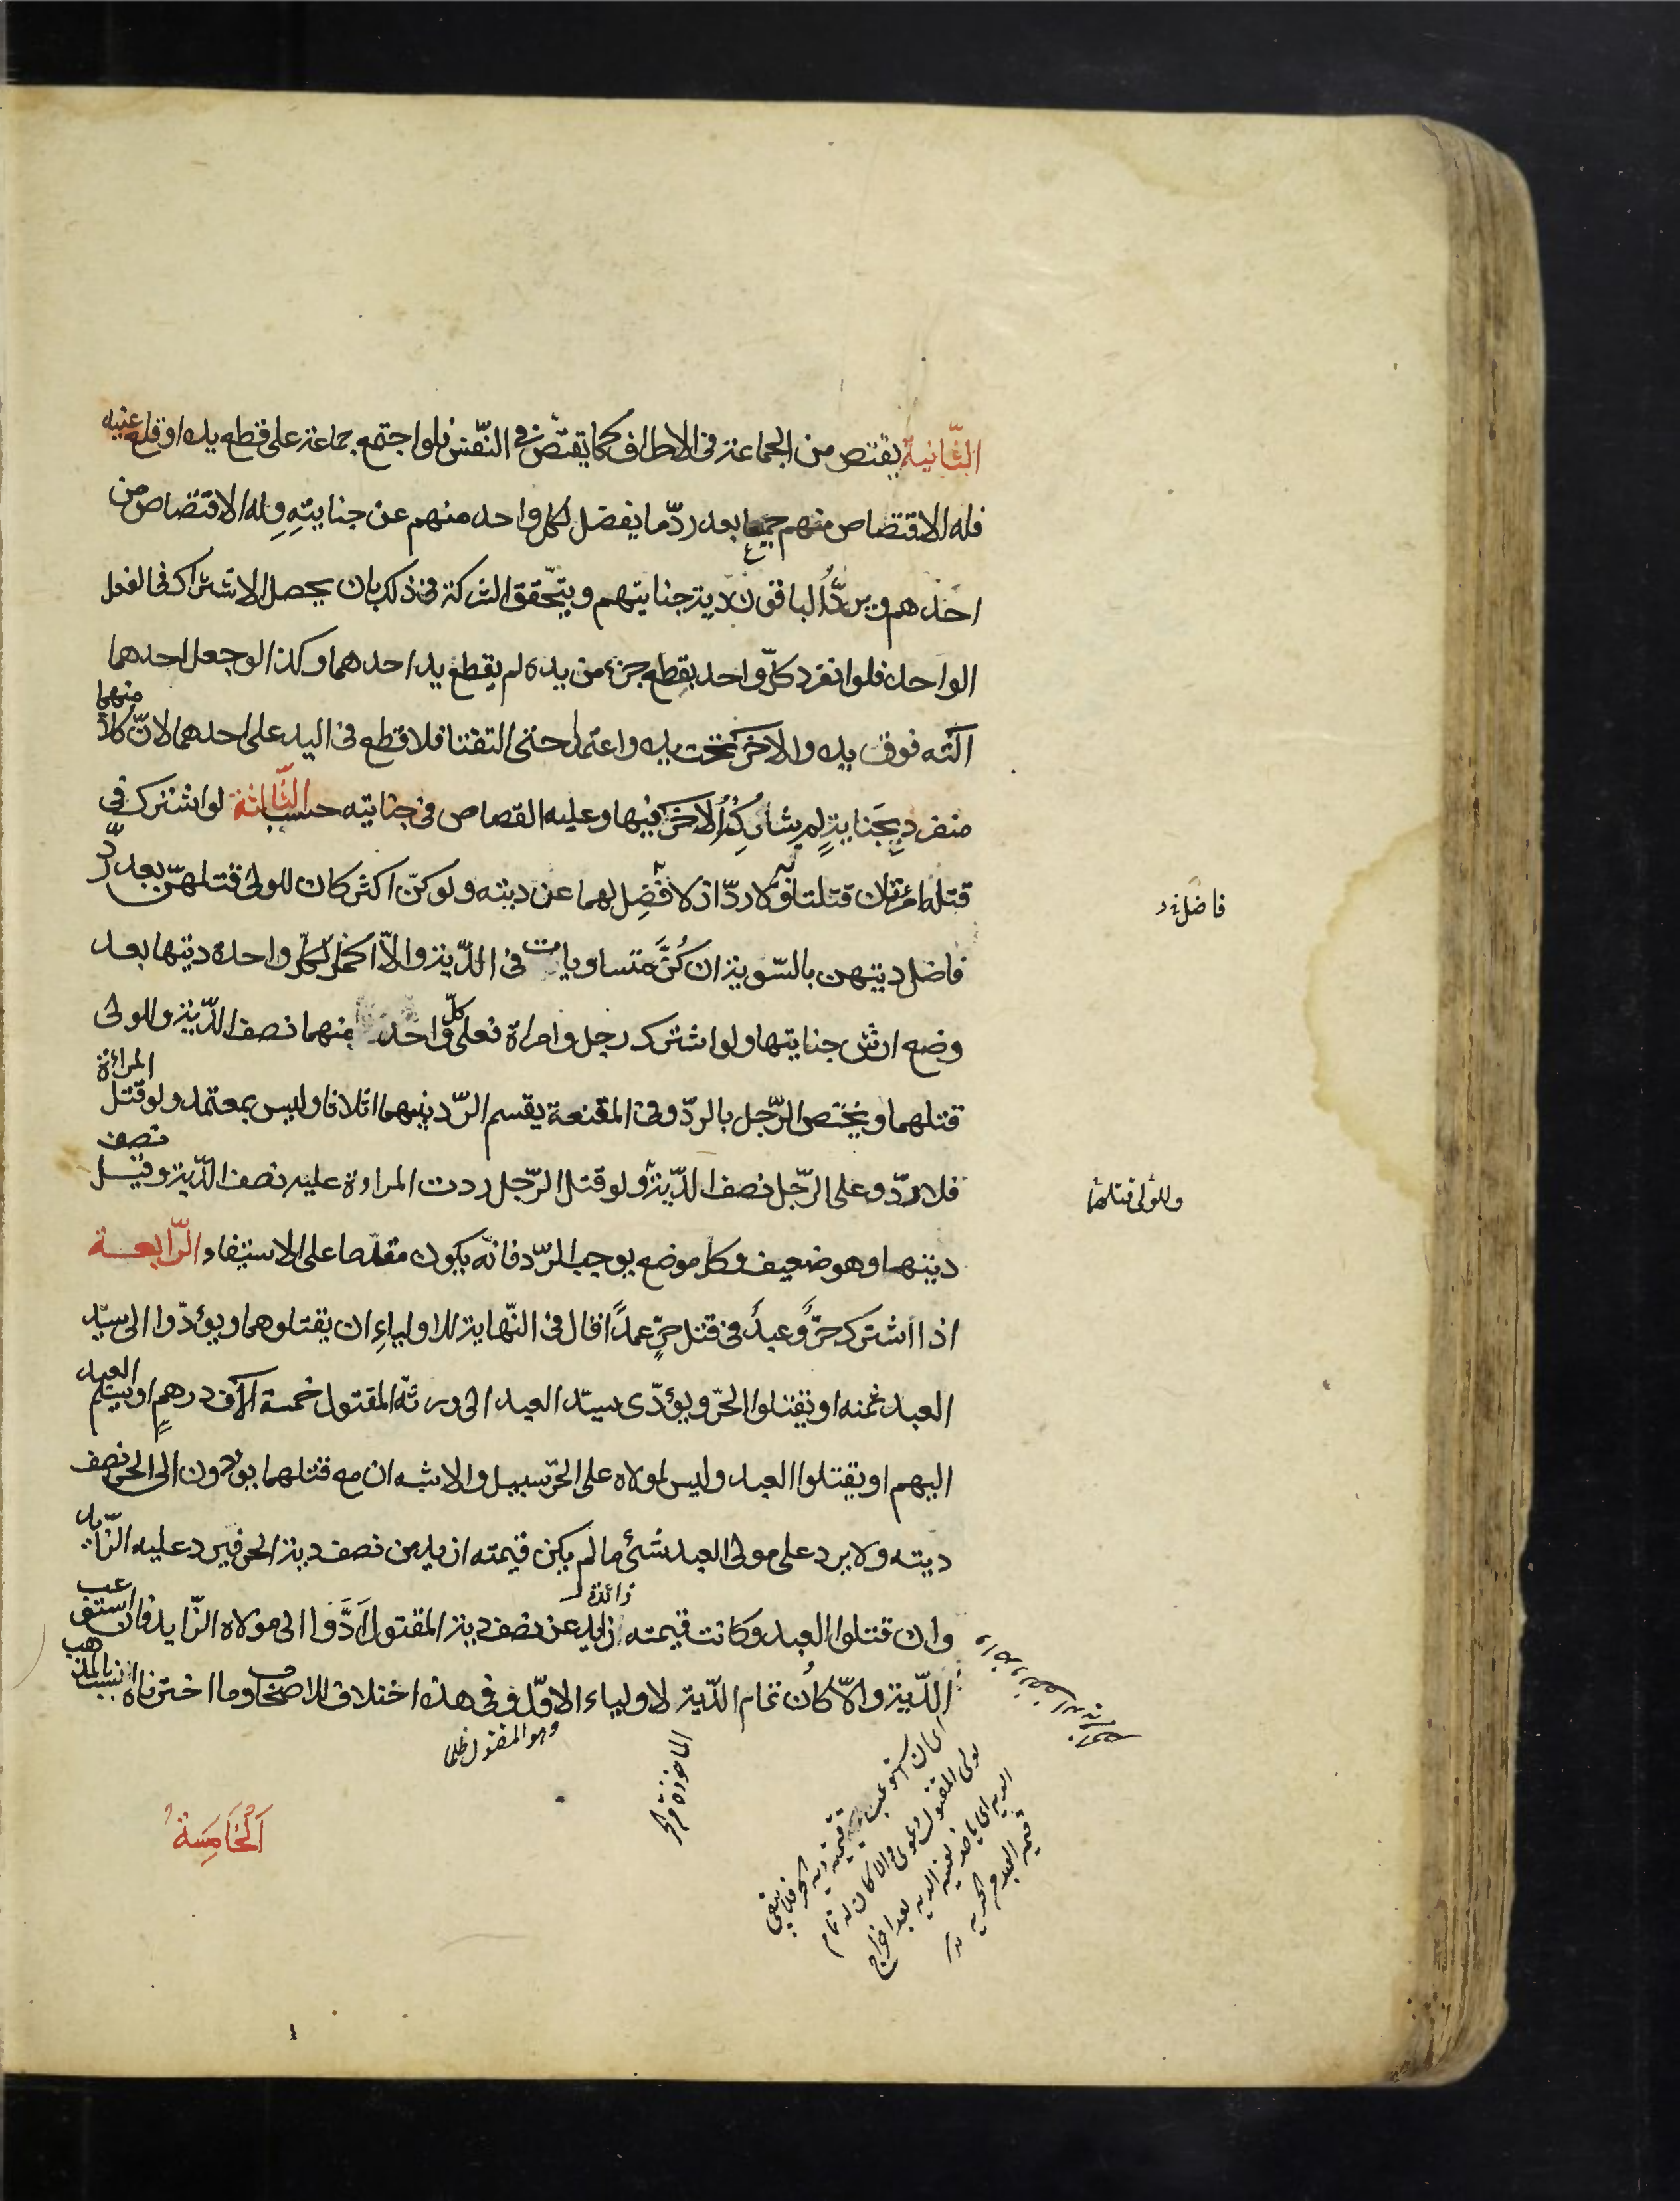 الثانية يقتص من الجماعة فى الاطراف كما يقتص فى النفس فلو اجتمع جماعة على قطع يده او قلع عينه
فله الاقتصاص منهم جميعا بعد رد ما يفضل لكل واحد منهم عن جنايته وله الاقتصاص من
احدهم ويرد الباقون دية جنايتهم ويتحقق الشركة فى ذلك بان يحصل الاشتراك فى الفعل
الواحد فلو انفرد كل واحد بقطع جزء من يده لم يقطع يد احدهما وكذا لو جعل احدهما
آلته فوق يده والاخر تحت يده واعتمدا حتى التقتا فلا قطع فى اليد على احدهما لان كلا منهما
منفرد بجناية لم يشاركه الاخر فيها وعليه القصاص فى جنايته حسب الثالثة لو اشترك فى
قتله امرئتان قتلتا به ولا رد اذ لا فضل لهما عن ديته ولو كن اكثر كان للولى قتلهن بعد رد
فاضل ديتهن بالسوية ان كن متساويات فى الدية والا اكمل لكل واحدة ديتها بعد
وضع ارش جنايتها ولو اشترك رجل وامراة فعلى كل واحد منهما نصف الدية وللولى
قتلهما ويختص الرجل بالرد وفى المقنعة يقسم الرد بينهما اثلاثا وليس بمعتمد ولو قتل المرائة
فلا رد وعلى الرجل نصف الدية ولو قتل الرجل ردت المراءة عليه نصف الدية وقيل نصف
ديتها وهو ضعيف وكل موضع يوجب الرد فانه يكون مقدما على الاستيفاء الرابعة
اذا اشترك حر وعبد فى قتل حر عمدا قال فى النهاية للاولياء ان يقتلوهما ويؤدوا الى سيد
العبد ثمنه او يقتلوا الحر ويؤدى سيد العبد الى ورثة المقتول خمسة آلاف درهم او يسلم العبد
اليهم او يقتلوا العبد وليس لمولاه على الحر سبيل والاشبه ان مع قتلهما يؤدون الى الحر نصف
ديته ولا يرد على مولى العبد شئ ما لم يكن قيمته ازيد من نصف دية الحر فيرد عليه الزايد
وان قتلوا العبد وكانت قيمته زائدة عن نصف دية المقتول ادوا الى مولاه الزايد فان استوعب
الدية والا كان تمام الدية لاولياء الاول وفى هذه اختلاف للاصحاب وما اخترناه انسب بالمذهب
فاضل
وللولى قتلهما
وهو المقتول ظلما
الخامسة